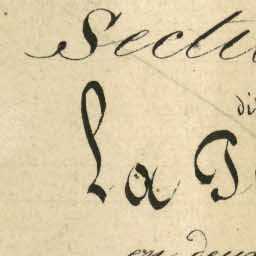 Secti
di
La T
en deu